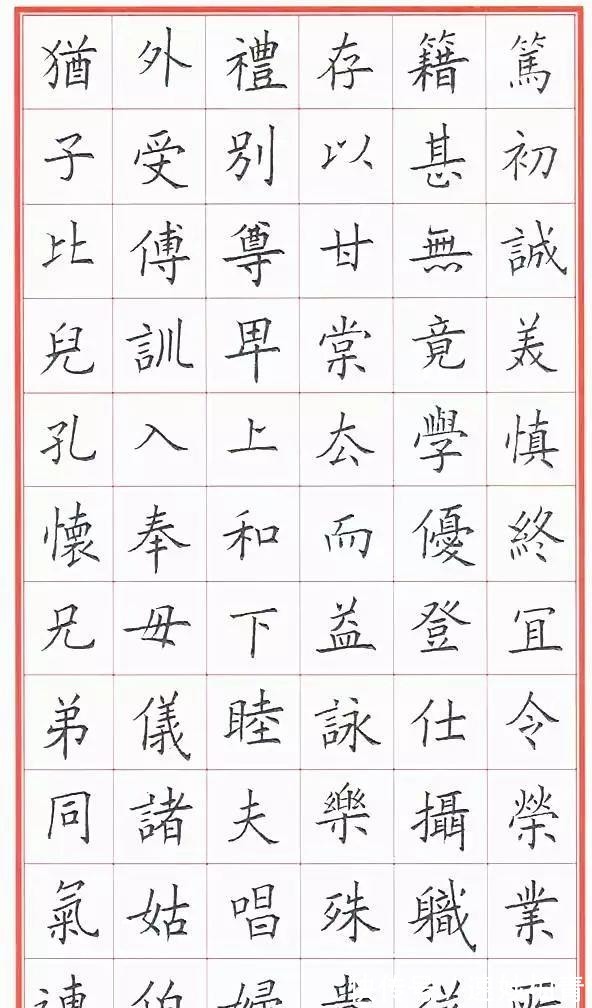 篤初誠美慎終冝令榮業
籍甚無竟學優登仕攝職
存以甘棠厺而益詠樂殊貴
禮別尊卑上和下睦夫唱婦
外受傅訓入奉母儀諸姑伯
猶子比兒孔懷兄弟同氣連